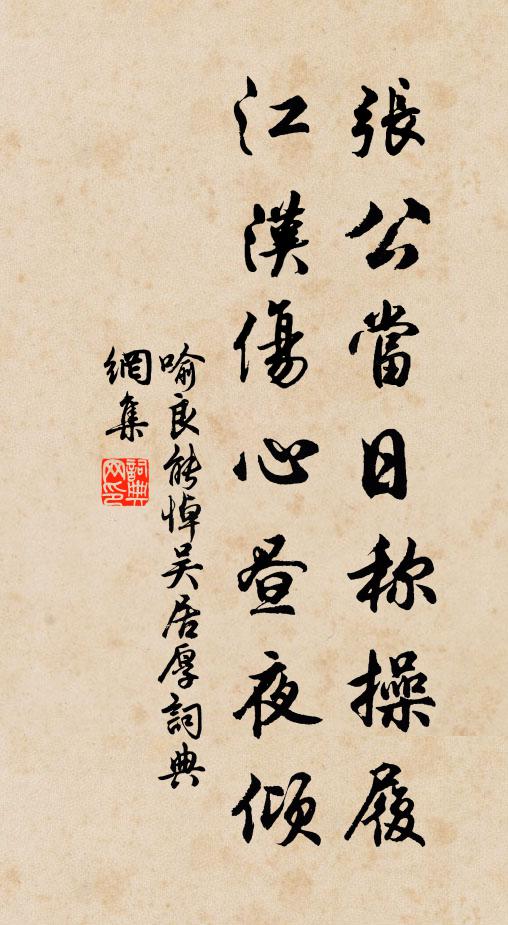 張公當日称操履
江漢傷心昼夜傾
喻良能悼吴居厚詞典
網集
詞典网印